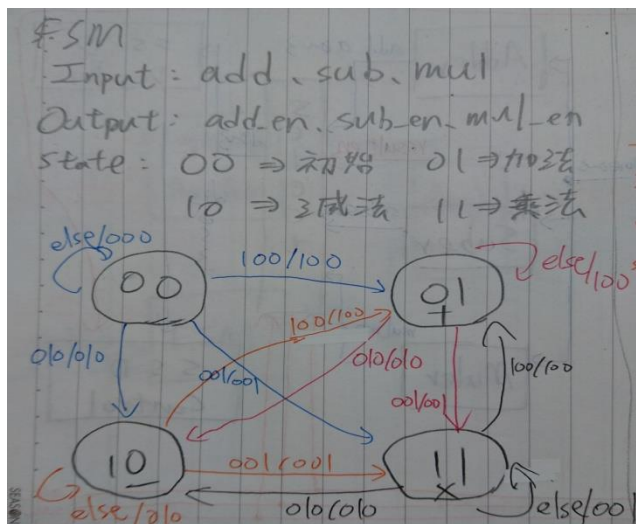 FSM
Input: add、sub、mul
Output: add_en、sub_en、mul_en
state: 00 ⇒ 初始 01 ⇒ 加法
10 ⇒ 減法 11 ⇒ 乘法
else/000
00
100/100
01
+
else/100
010/010
001/001
100/100
010/010
001/001
100/100
10
-
001/001
11
×
else/010
010/010
else/001